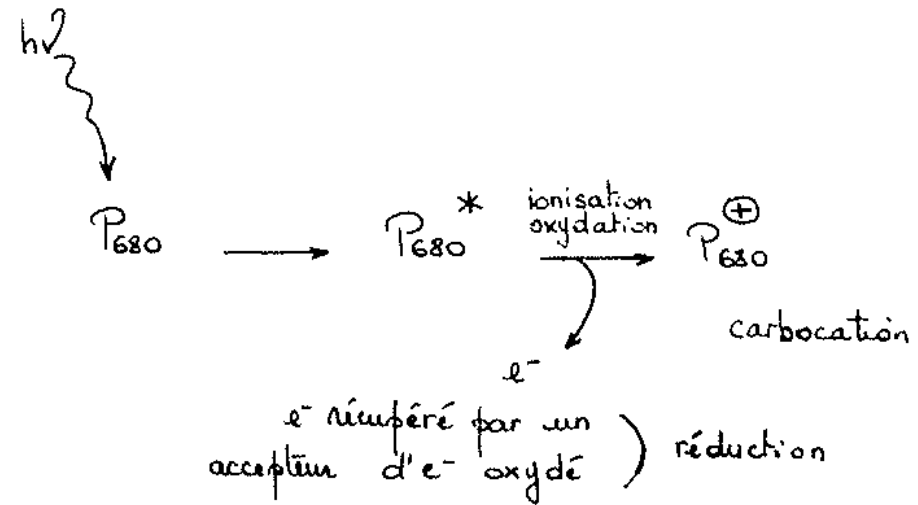 hν
P680 P680* ionisation oxydation P680⊕
carbocation
e⁻
e⁻ récupéré par un
accepteur d'e⁻ oxydé ) réduction